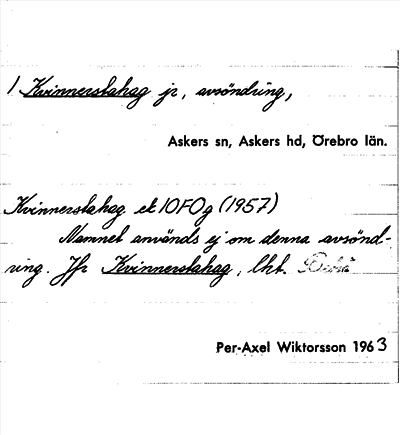 1 Kvinnerstahag jr, avsöndring,
Askers sn, Askers hd, Örebro län.
Kvinnerstahag ek 10F0g (1957)
Namnet används ej om denna avsönd-
ring. Jfr Kvinnerstahag, lht.
Per-Axel Wiktorsson 1963